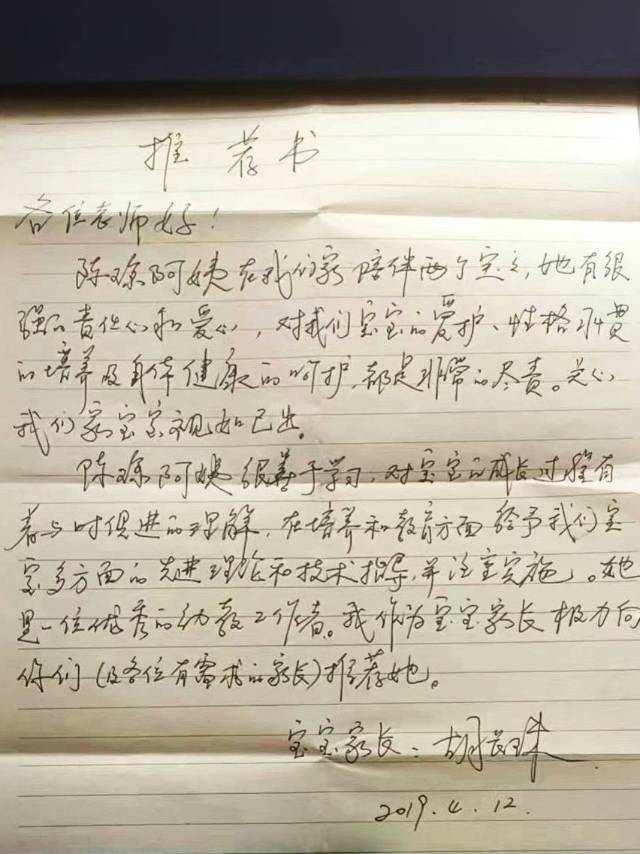 推荐书
各位老师好！
陈琼阿姨在我们家陪伴两个宝宝，她有很
强的责任心和爱心，对我们宝宝的爱护、性格习惯
的培养及身体健康的呵护，都是非常的尽责。关心
我们家宝宝视如己出。
陈琼阿姨很善于学习，对宝宝的成长过程有
着与时俱进的理解，在培养和教育方面给予我们宝
宝多方面的先进理论和技术指导，并注重实施。她
是一位优秀的幼教工作者。我作为宝宝家长极力向
你们（及各位有需求的家长）推荐她。
宝宝家长：胡
2019.4.12.